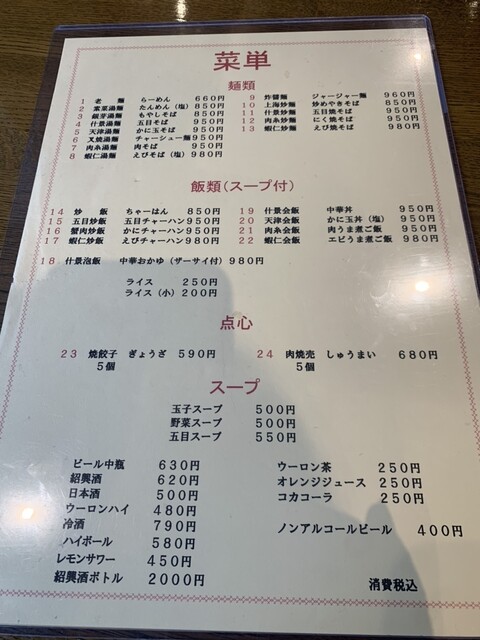 菜単
麺類
1 老　麺 らーめん 660円
2 葉菜湯麺 たんめん（塩）850円
3 銀芽湯麺 もやしそば 850円
4 什景湯麺 五目そば 950円
5 天津湯麺 かに玉そば 950円
6 叉焼湯麺 チャーシュー麺 950円
7 肉糸湯麺 肉そば 950円
8 蝦仁湯麺 えびそば（塩）980円
9 炸醤麺 ジャージャー麺 960円
10 上海炒麺 炒めやきそば 850円
11 什景炒麺 五目焼そば 950円
12 肉糸炒麺 にく焼そば 950円
13 蝦仁炒麺 えび焼そば 980円
飯類（スープ付）
14 炒　飯 ちゃーはん 850円
15 五目炒飯 五目チャーハン 950円
16 蟹肉炒飯 かにチャーハン 950円
17 蝦仁炒飯 えびチャーハン 980円
18 什景泡飯 中華おかゆ（ザーサイ付）980円
19 什景会飯 中華丼 950円
20 天津会飯 かに玉丼（塩）950円
21 肉糸会飯 肉うま煮ご飯 950円
22 蝦仁会飯 エビうま煮ご飯 980円
ライス 250円
ライス（小）200円
点心
23 焼餃子 ぎょうざ 590円
5個
24 肉焼売 しゅうまい 680円
5個
スープ
玉子スープ 500円
野菜スープ 500円
五目スープ 550円
ビール中瓶 630円
紹興酒 620円
日本酒 500円
ウーロンハイ 480円
冷酒 790円
ハイボール 580円
レモンサワー 450円
紹興酒ボトル 2000円
ウーロン茶 250円
オレンジジュース 250円
コカコーラ 250円
ノンアルコールビール 400円
消費税込